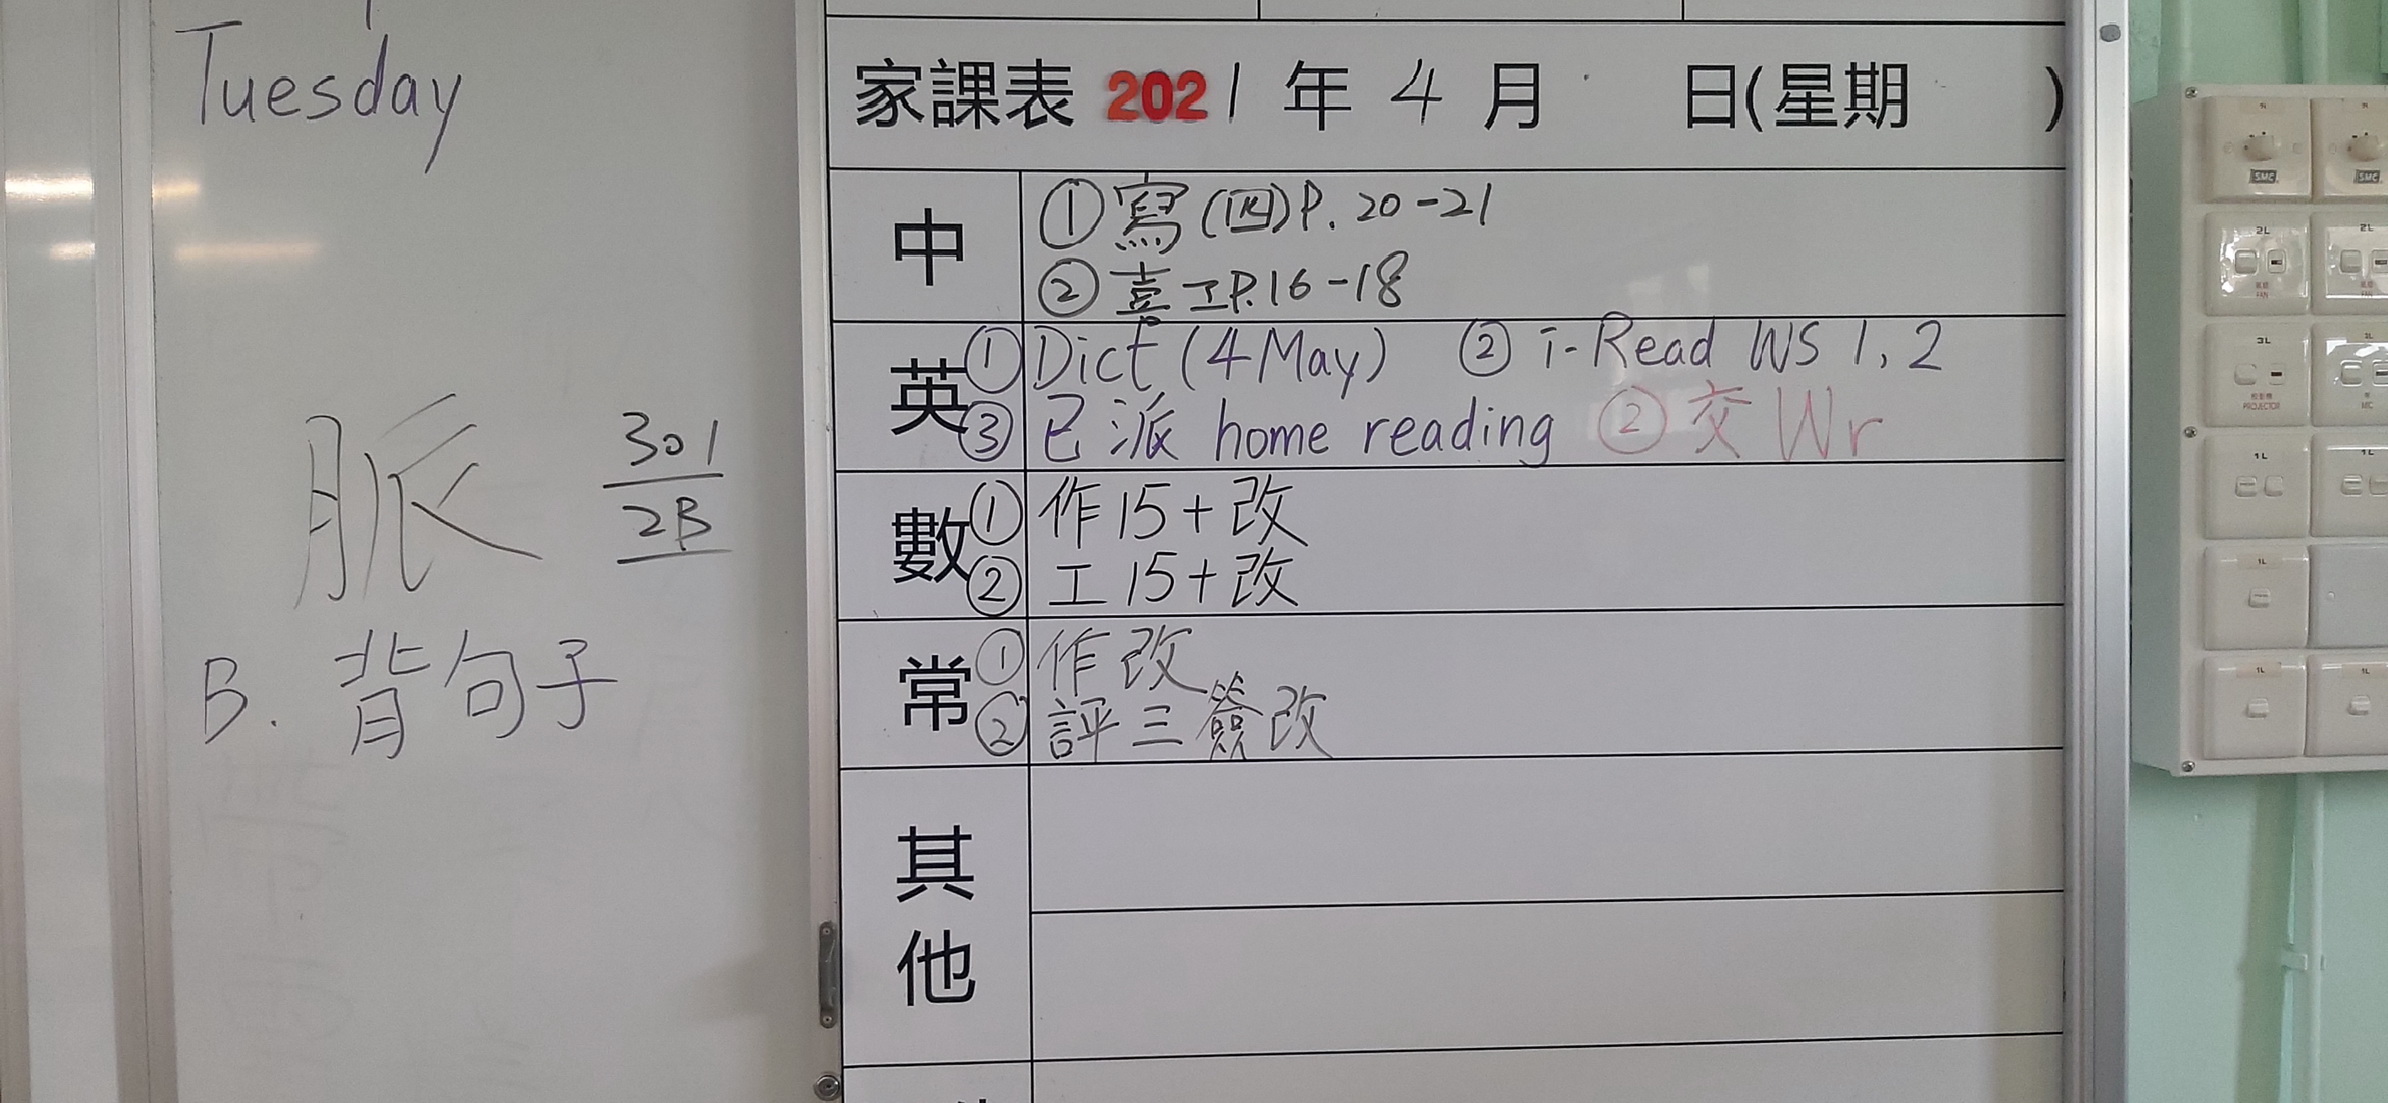 Tuesday
脈
301
2B
B. 背句子
家課表 2021 年 4 月 日(星期 )
中
① 寫(四)P. 20-21
② 喜工P.16-18
英
① Dict (4 May) ② i-Read WS 1, 2
③ 已派 home reading ② 交 Wr
數
① 作 15 + 改
② 工 15 + 改
常
① 作改
② 評三簽改
其
他
SMC
SMC
2L
2L
FAN
3L
PROJECTOR
MIC
1L
1L
1L
1L
1L